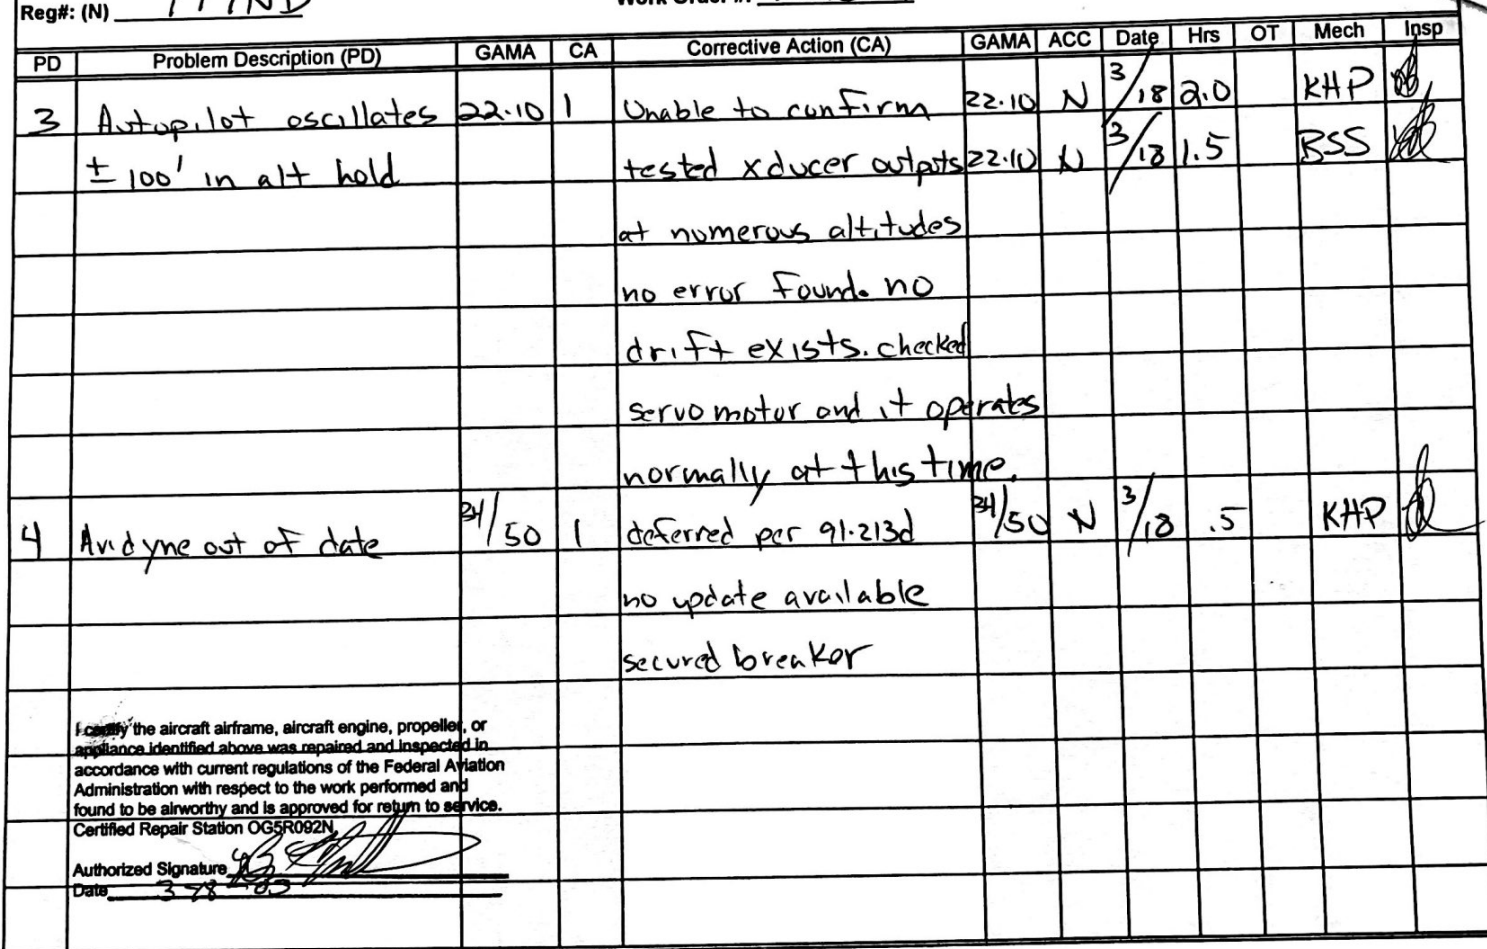 Reg#: (N)
PD Problem Description (PD) GAMA CA Corrective Action (CA) GAMA ACC Date Hrs OT Mech Insp
3 Autopilot oscillates 22.10 1 Unable to confirm 22.10 N 3/18 2.0 KHP
± 100' in alt hold tested xducer outputs 22.10 N 3/18 1.5 BSS
at numerous altitudes
no error found. no
drift exists. checked
servo motor and it operates
normally at this time.
4 Avidyne out of date 34/50 1 deferred per 91.213d 34/50 N 3/18 .5 KHP
no update available
secured breaker
I certify the aircraft airframe, aircraft engine, propeller, or
appliance identified above was repaired and inspected in
accordance with current regulations of the Federal Aviation
Administration with respect to the work performed and
found to be airworthy and is approved for return to service.
Certified Repair Station OG5R092N
Authorized Signature
Date